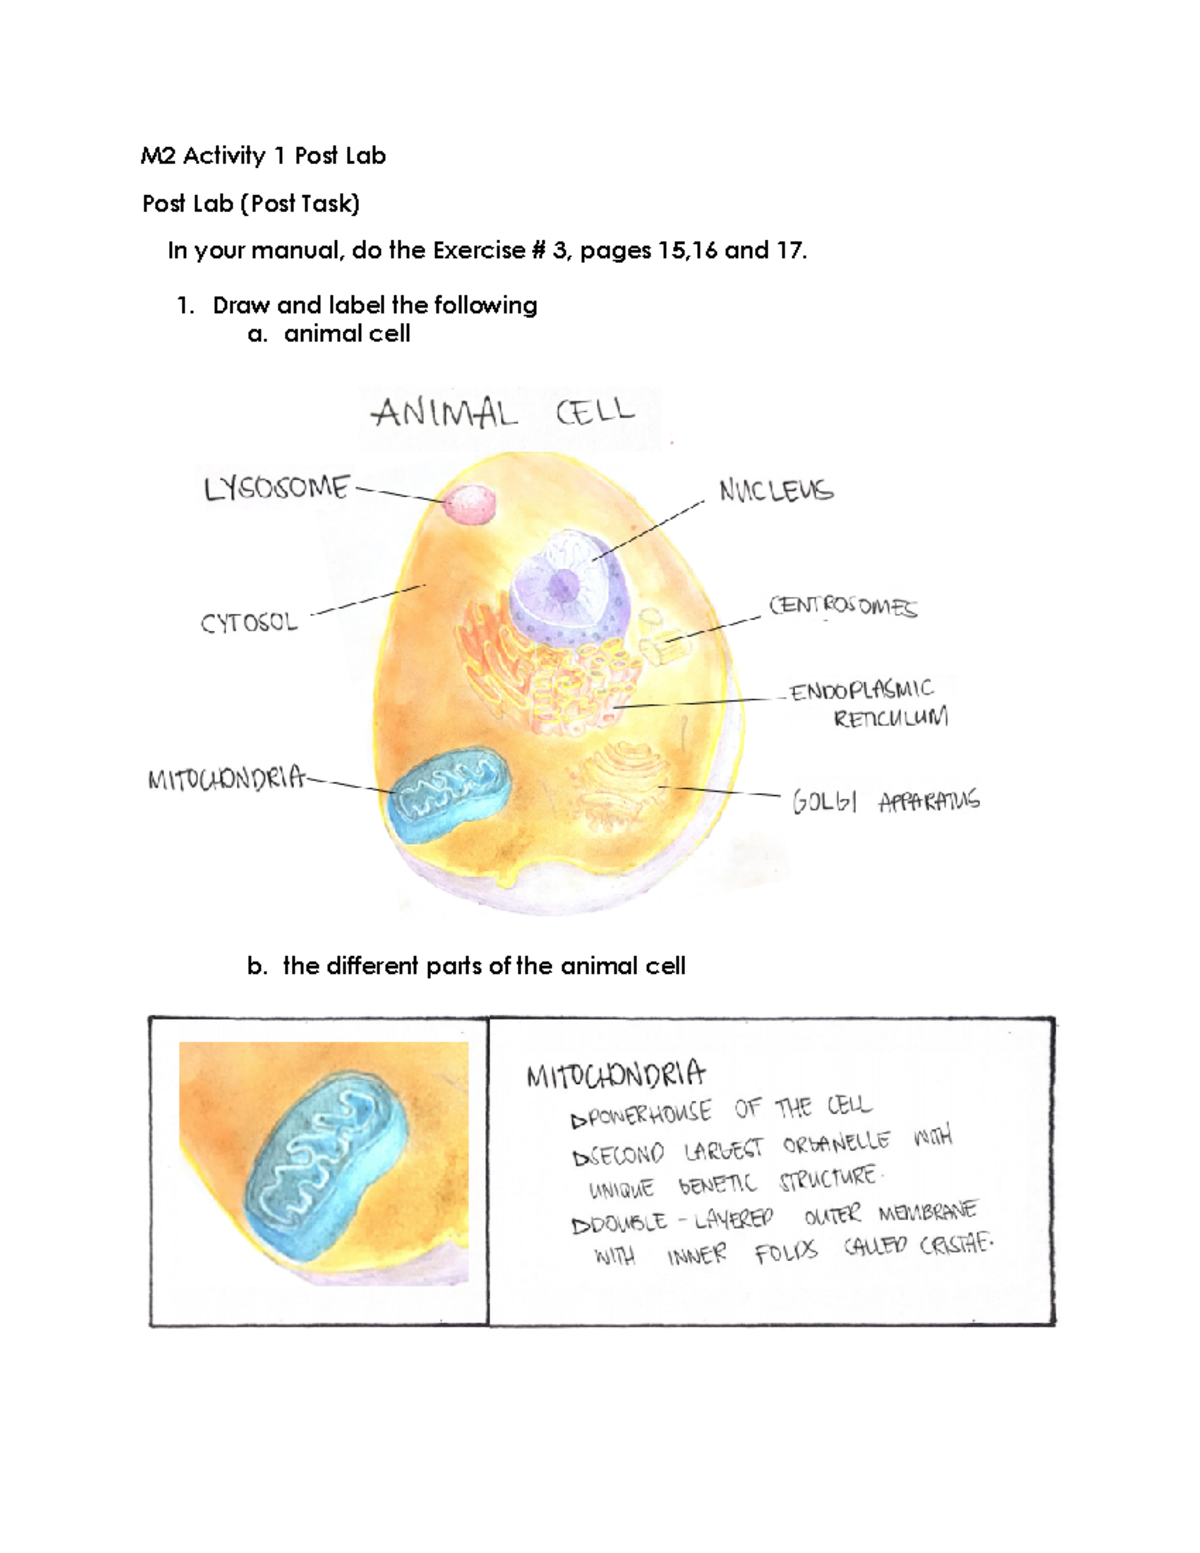 M2 Activity 1 Post Lab
Post Lab (Post Task)
In your manual, do the Exercise # 3, pages 15,16 and 17.
1. Draw and label the following
a. animal cell
ANIMAL CELL
LYSOSOME
NUCLEUS
CYTOSOL
CENTROSOMES
ENDOPLASMIC
RETICULUM
MITOCHONDRIA
GOLGI APPARATUS
b. the different parts of the animal cell
MITOCHONDRIA
▷POWERHOUSE OF THE CELL
▷SECOND LARGEST ORGANELLE WITH
UNIQUE GENETIC STRUCTURE.
▷DOUBLE - LAYERED OUTER MEMBRANE
WITH INNER FOLDS CALLED CRISTAE.